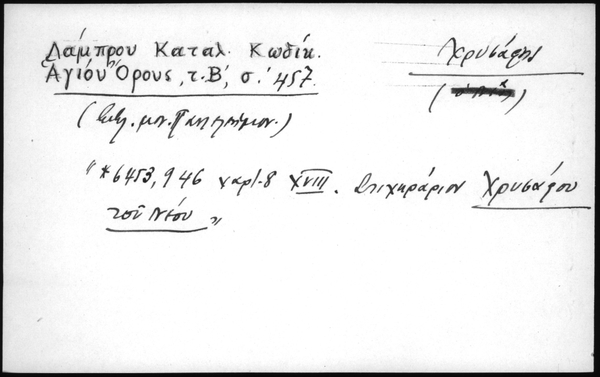 Λάμπρου Καταλ. Κωδίκ.
Ἁγίου Ὄρους, τ. Β', σ. 457.
Χρυσάφης
(Βιβλ. μον. Παντελεήμον.)
"*6453, 946 χαρτ. 8 XVIII. Στιχηράριον Χρυσάφου
τοῦ Νέου"